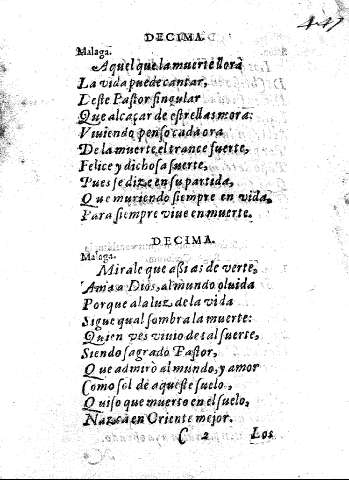 447
DECIMA.
Malaga.
Aquel que la muerte llora
La vida puede cantar,
Deste Pastor singular
Que alcaçar de estrellas mora:
Viuiendo penso cada ora
De la muerte el trance fuerte,
Felice y dichosa suerte,
Pues se dize en su partida,
Que muriendo siempre en vida,
Para siempre viue en muerte.
DECIMA.
Malaga.
Mirale que aßi as de verte,
Ama a Dios, al mundo oluida
Porque a la luz de la vida
Sigue qual sombra la muerte:
Quien ves viuio de tal suerte,
Siendo sagrado Pastor,
Que admirò al mundo, y amor
Como sol de aqueste suelo,
Quiso que muerto en el suelo,
Nazca en Oriente mejor.
C 2 Los